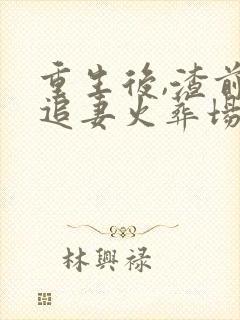 重生後,渣前
追妻火葬場
林興禄